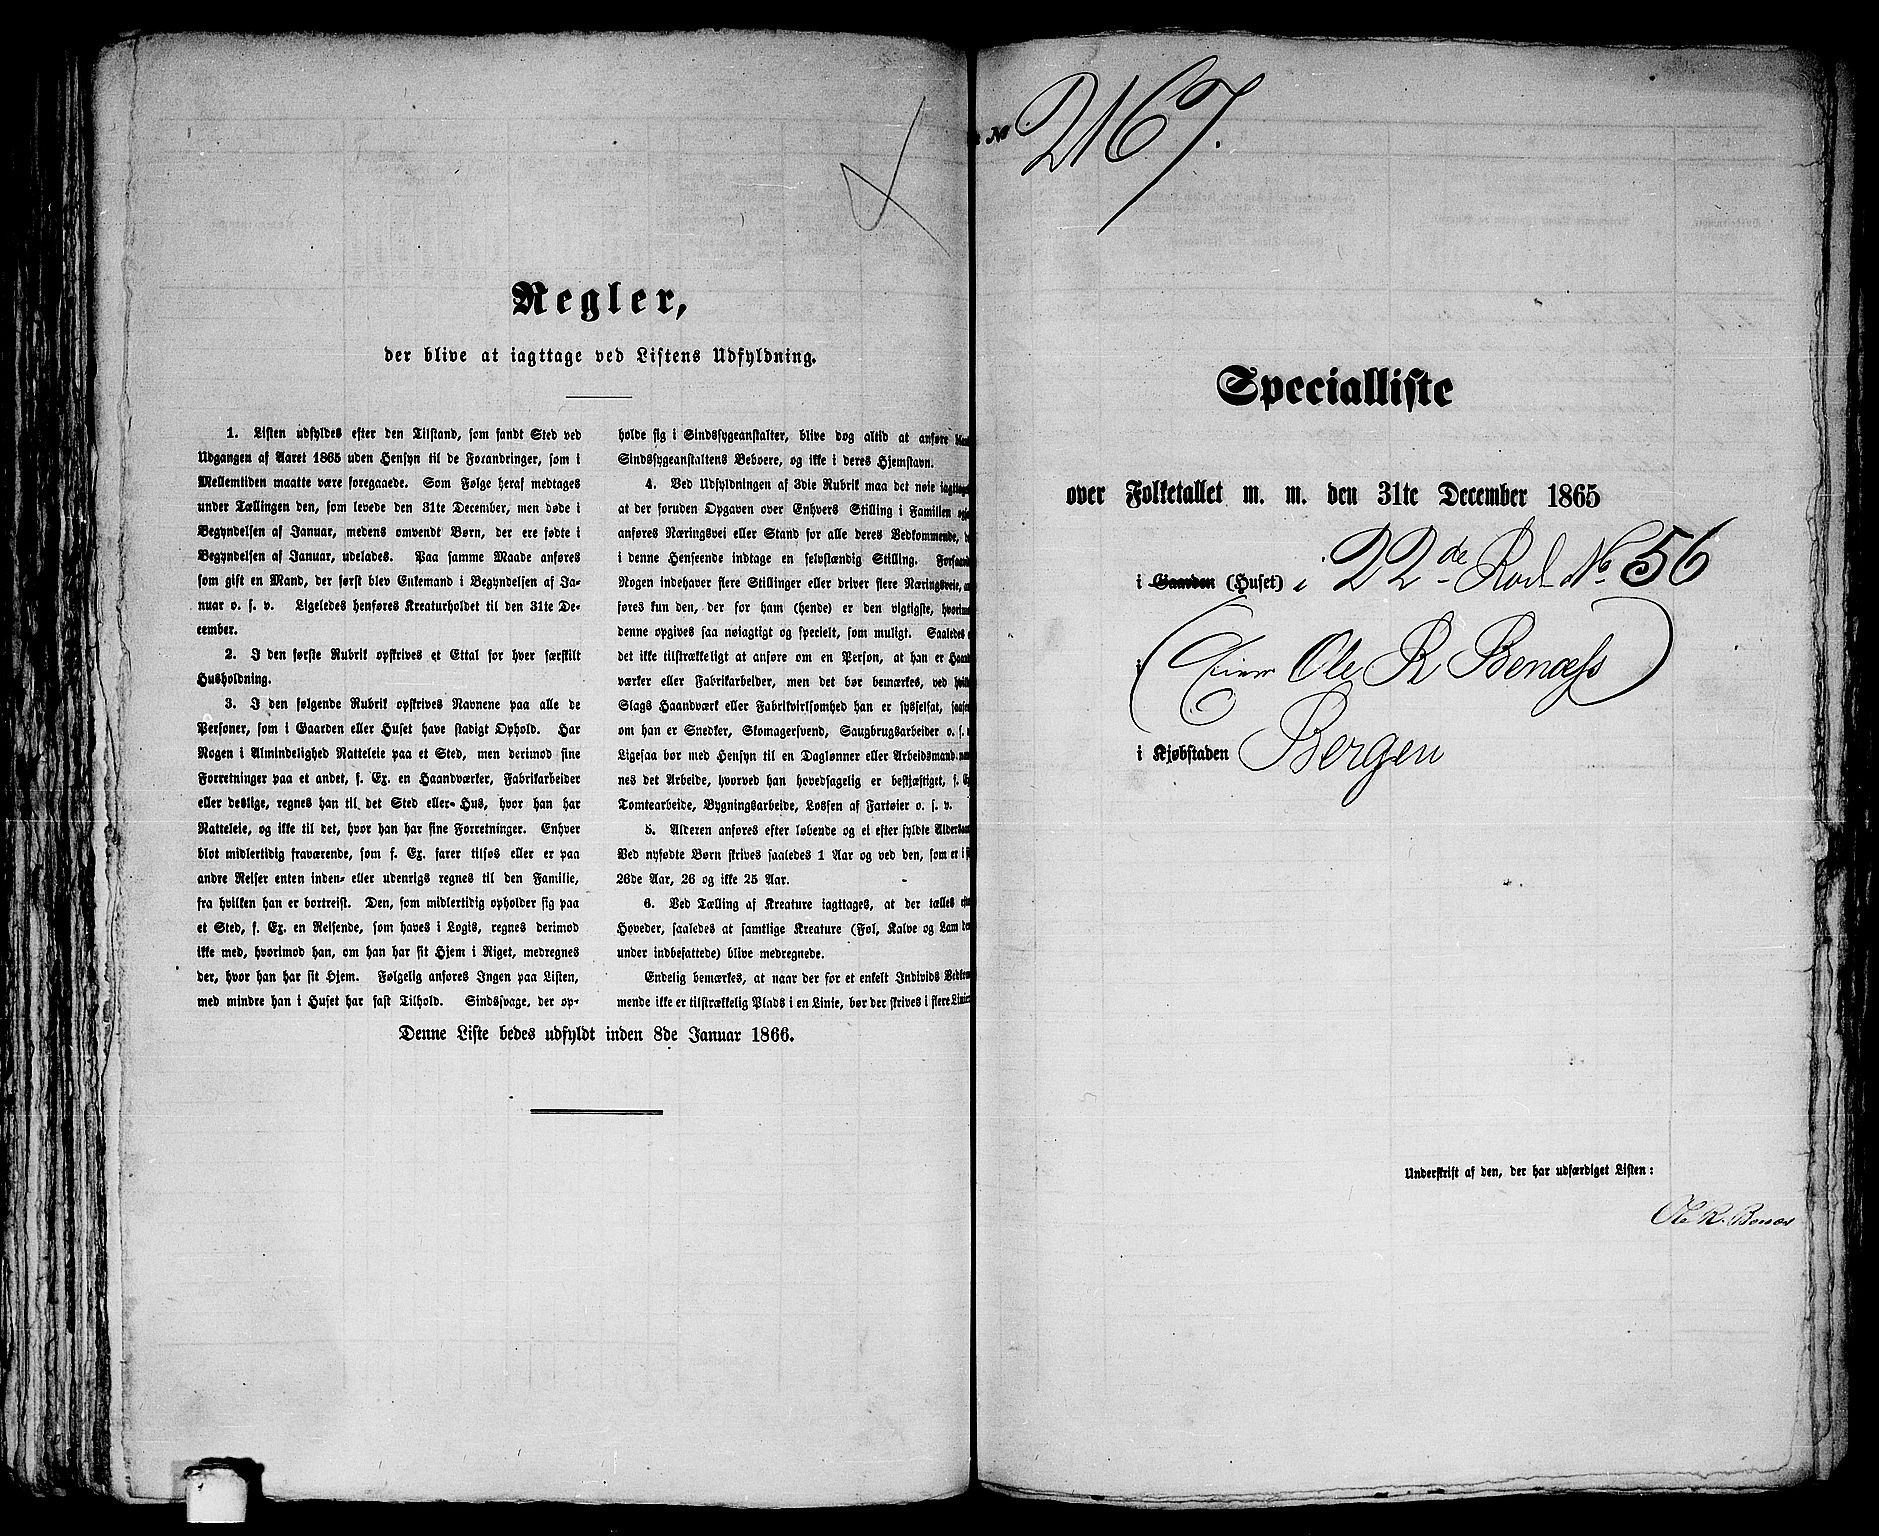 Regler,
der blive at iagttage ved Listens Udfyldning.
1. Listen udfyldes efter den Tilstand, som fandt Sted ved
Udgangen af Aaret 1865 uden Hensyn til de Forandringer, som i
Mellemtiden maatte være foregaaede. Som Følge heraf medtages
under Tællingen den, som levede den 31te December, men døde i
Begyndelsen af Januar, medens omvendt Børn, der ere fødte i
Begyndelsen af Januar, udelades. Paa samme Maade anføres
som gift en Mand, der først blev Enkemand i Begyndelsen af Ja-
nuar o. s. v. Ligeledes henføres Kreaturholdet til den 31te De-
cember.
2. I den første Rubrik opskrives et Ettal for hver særskilt
Husholdning.
3. I den følgende Rubrik opskrives Navnene paa alle de
Personer, som i Gaarden eller Huset have stadigt Ophold. Har
Nogen i Almindelighed Natteleie paa et Sted, men derimod sine
Forretninger paa et andet, f. Ex. en Haandværker, Fabrikarbeider
eller deslige, regnes han til det Sted eller Hus, hvor han har
Natteleie, og ikke til det, hvor han har sine Forretninger. Enhver
blot midlertidig fraværende, som f. Ex. farer tilsøs eller er paa
andre Reiser enten inden- eller udenrigs regnes til den Familie,
fra hvilken han er bortreist. Den, som midlertidig opholder sig paa
et Sted, f. Ex. en Reisende, som haves i Logis, regnes derimod
ikke med, hvorimod han, om han har sit Hjem i Riget, medregnes
der, hvor han har sit Hjem. Følgelig anføres Ingen paa Listen,
med mindre han i Huset har fast Tilhold. Sindssvage, der op-
holde sig i Sindssygeanstalter, blive dog altid at anføre
Sindssygeanstaltens Beboere, og ikke i deres Hjemstavn.
4. Ved Udfyldningen af 3die Rubrik maa det nøie
at der foruden Opgaven over Enhvers Stilling i Familien
anføres Næringsvei eller Stand for alle deres Vedkommende,
i denne Henseende indtage en selvstændig Stilling.
Nogen indehaver flere Stillinger eller driver flere Næringsveie,
føres kun den, der for ham (hende) er den vigtigste,
denne opgives saa nøiagtigt og specielt, som muligt. Saaledes
det ikke tilstrækkeligt at anføre om en Person, at han er
værker eller Fabrikarbeider, men det bør bemærkes, ved
Slags Haandværk eller Fabrikvirksomhed han er sysselsat,
om han er Snedker, Skomagersvend, Saugbrugsarbeider o. s.
Ligesaa bør med Hensyn til en Daglønner eller Arbeidsmand
nes det Arbeide, hvorved han hovedsagelig er beskjæftiget, f.
Tomtearbeide, Bygningsarbeide, Lossen af Fartøier o. s. v.
5. Alderen anføres efter løbende og ei efter fyldte
Ved nyfødte Børn skrives saaledes 1 Aar og ved den, som er i
26de Aar, 26 og ikke 25 Aar.
6. Ved Tælling af Kreature iagttages, at der tælles
Høveder, saaledes at samtlige Kreature (Føl, Kalve og Lam
under indbefattede) blive medregnede.
Endelig bemærkes, at naar der for et enkelt Individs
mende ikke er tilstrækkelig Plads i en Linie, bør der skrives i flere
Denne Liste bedes udfyldt inden 8de Januar 1866.
No 2167.
Specialliste
over Folketallet m. m. den 31te December 1865
i Gaarden (Huset) i 22de Rode No 56
i (Eier Ole R Benæss)
i Kjøbstaden Bergen
Underskrift af den, der har udfærdiget Listen:
Ole R. Benæs